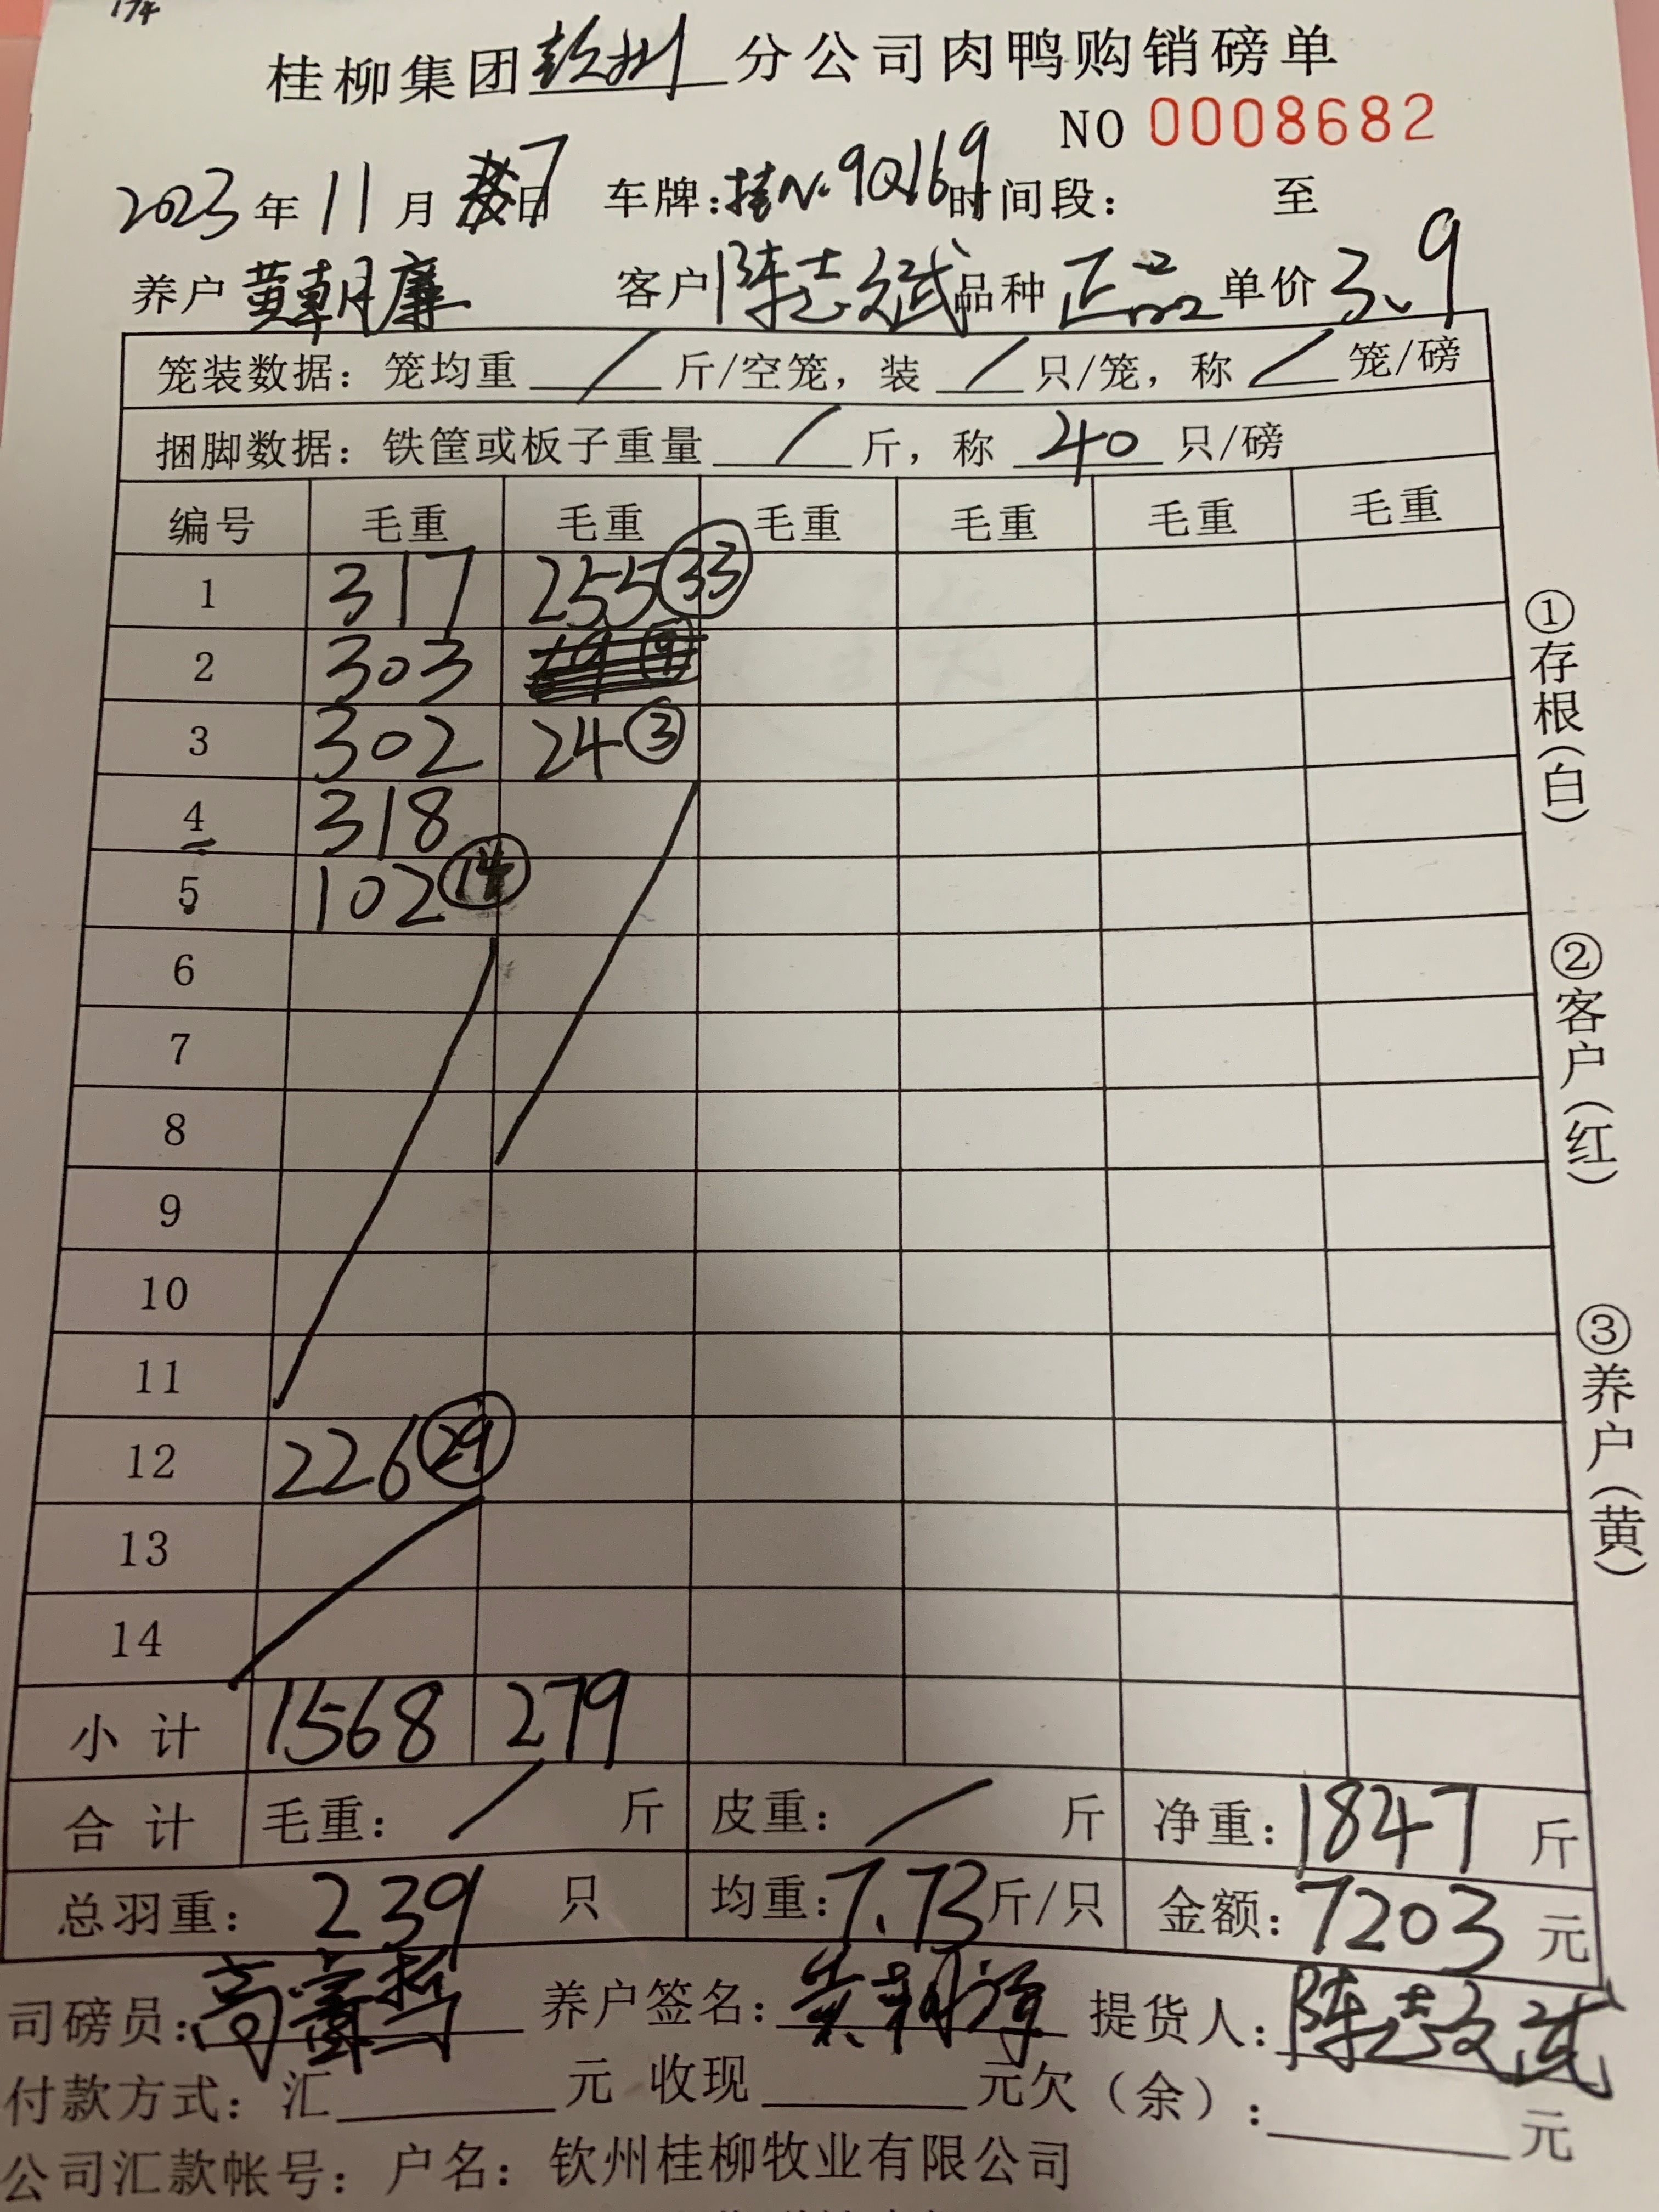 174
桂柳集团钦州分公司肉鸭购销磅单
NO 0008682
2023年11月7日 车牌:桂N·9Q169 时间段: 至
养户 黄朝廉 客户 陈志斌 品种 正品 单价 3.9
笼装数据：笼均重 / 斤/空笼，装 / 只/笼，称 / 笼/磅
捆脚数据：铁筐或板子重量 / 斤，称 40 只/磅
编号 毛重 毛重 毛重 毛重 毛重 毛重
1 317 255 33
2 303
3 302 24 3
4 318
5 102 14
6
7
8
9
10
11
12 226 29
13
14
小计 1568 279
合计 毛重: / 斤 皮重: / 斤 净重: 1847 斤
总羽重: 239 只 均重: 7.73 斤/只 金额: 7203 元
司磅员: 养户签名: 提货人: 陈志斌
付款方式: 汇 元 收现 元欠（余）: 元
公司汇款帐号: 户名: 钦州桂柳牧业有限公司
①存根（白）
②客户（红）
③养户（黄）